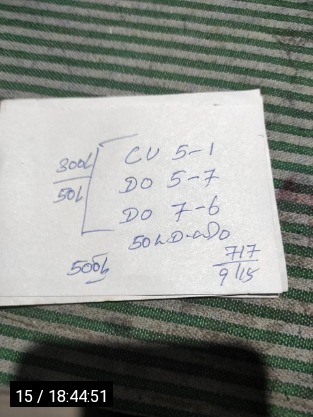 300L
50L
CU 5-1
DO 5-7
DO 7-6
500L
717
9
15 / 18:44:51